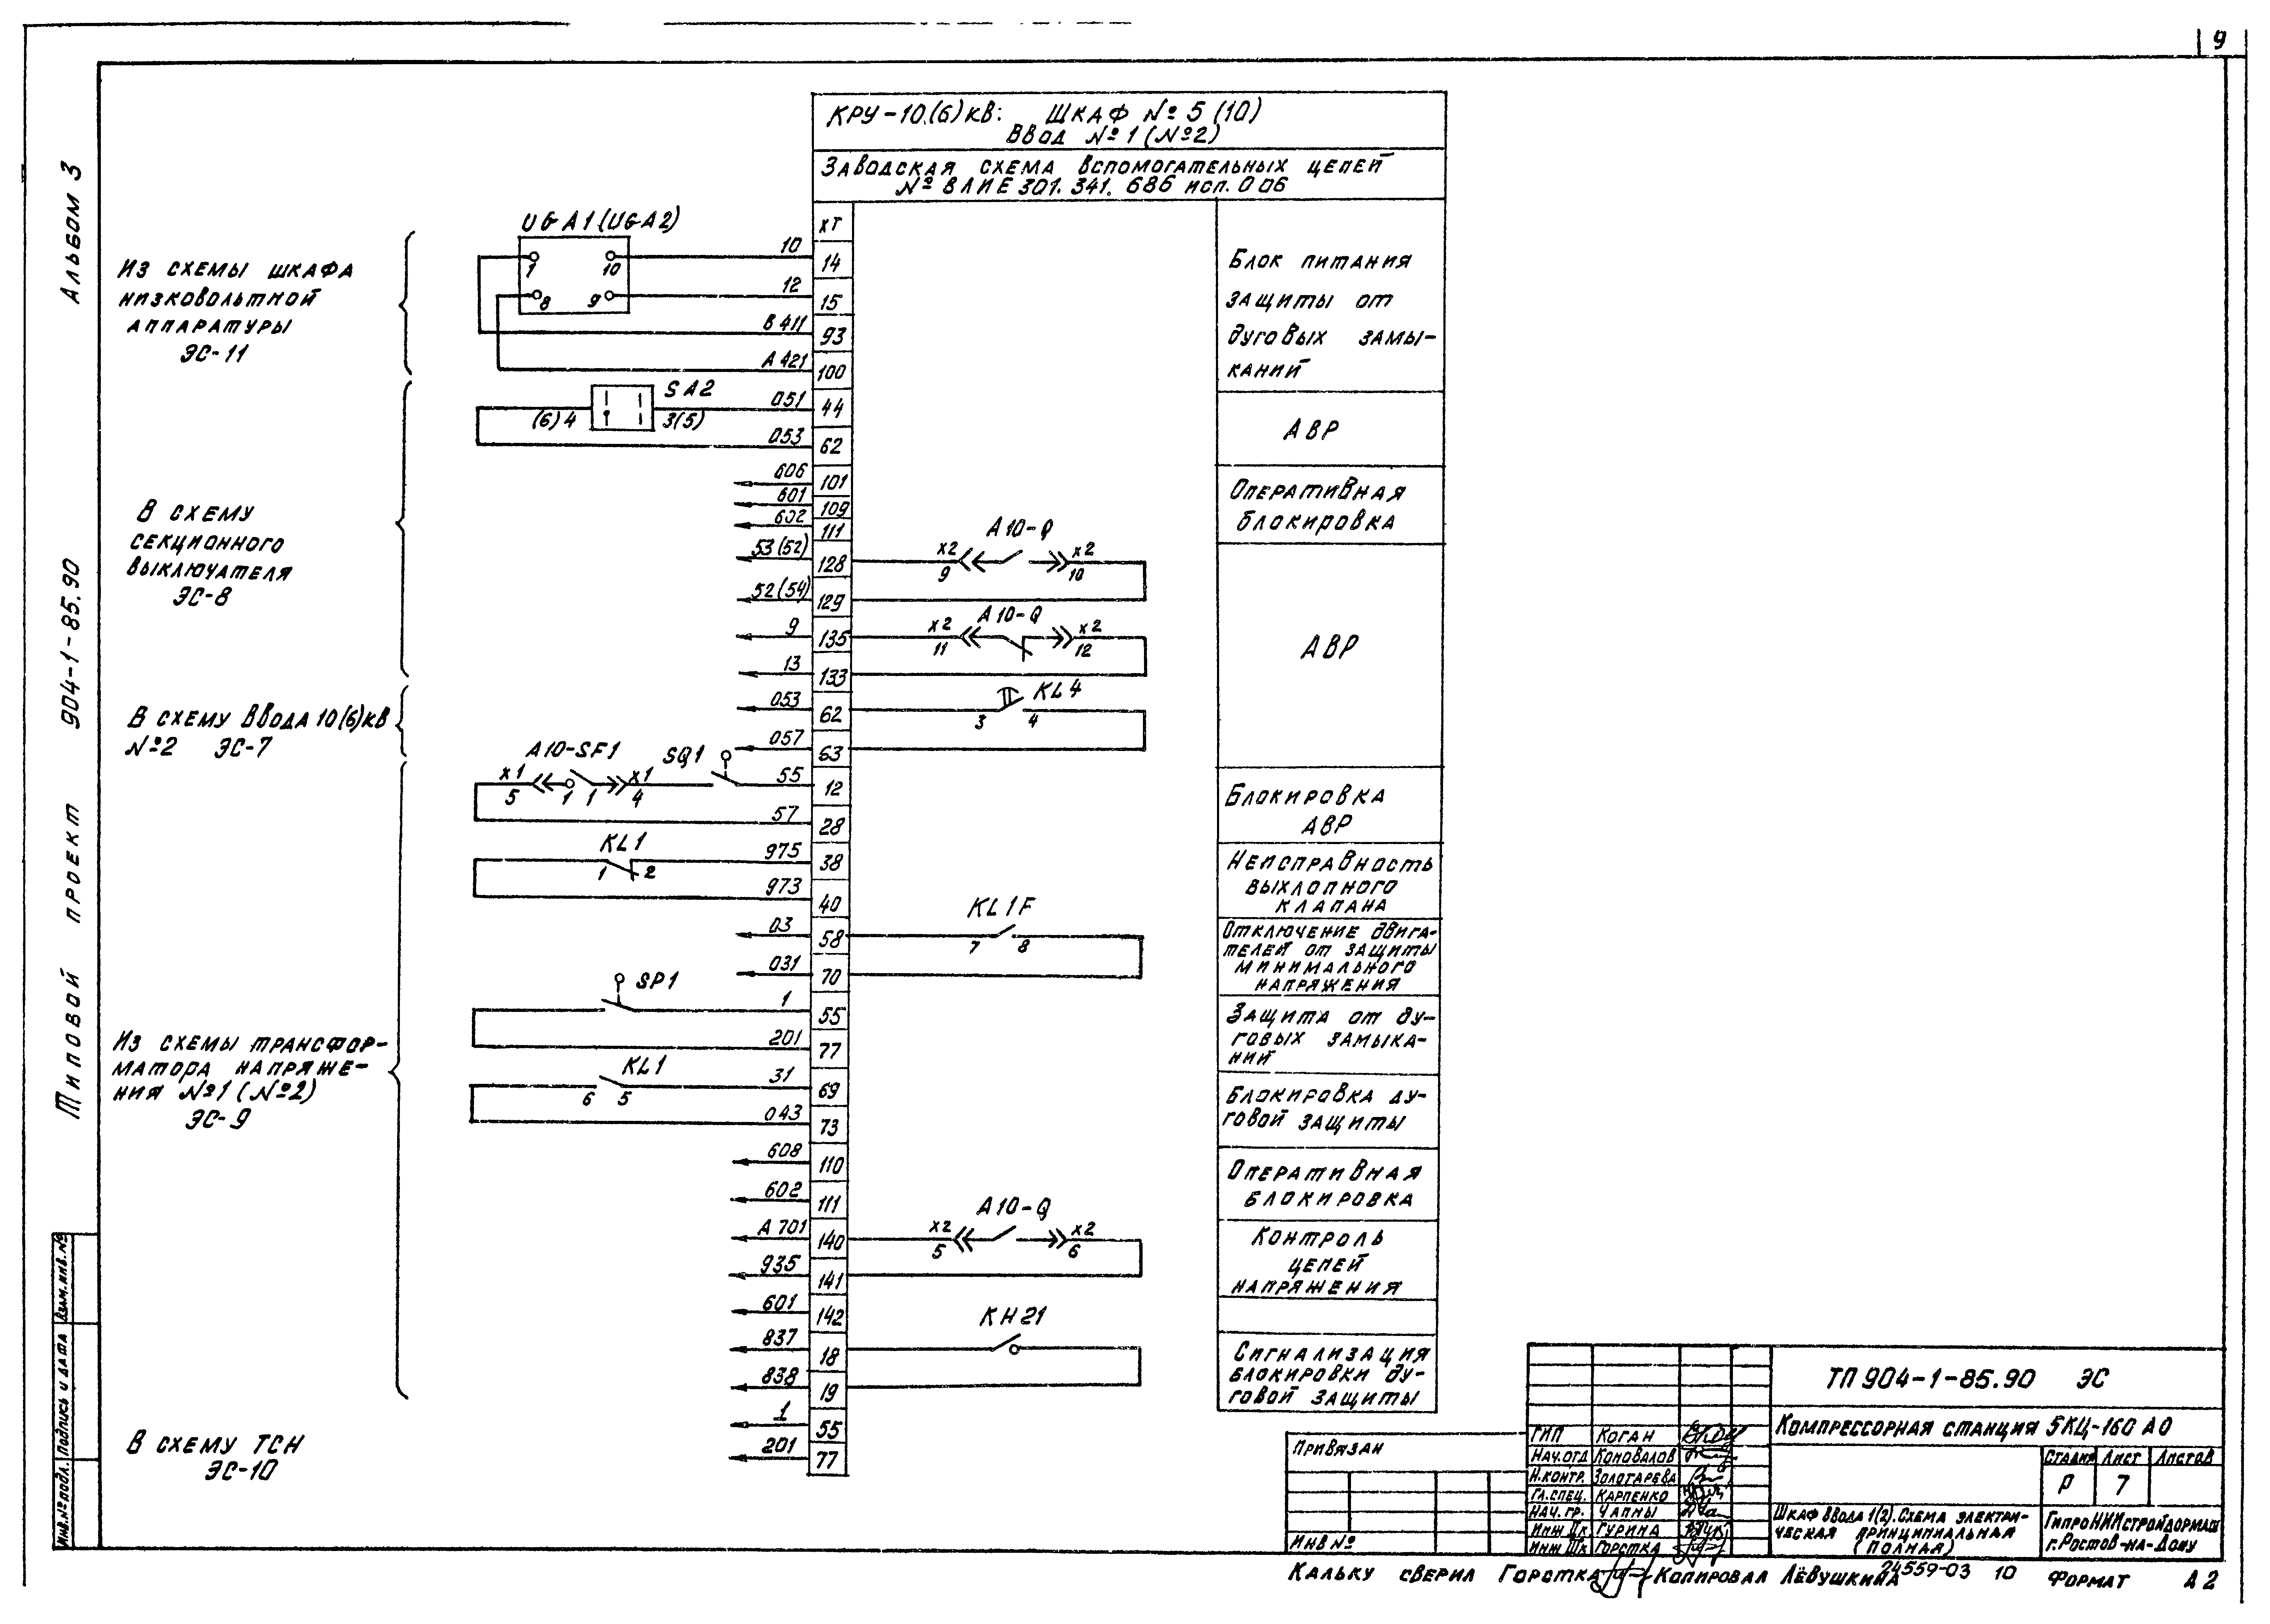 9
Альбом 3
904-1-85.90
Типовой проект
КРУ-10(6)кВ: Шкаф №5 (10)
Ввод №1 (№2)
Заводская схема вспомогательных цепей
№ ВЛИЕ 301.341.686 исп. 006
ХТ
Из схемы шкафа
низковольтной
аппаратуры
ЭС-11
UGA1 (UGA2)
1 10
8 9
10 14
12 15
В411 93
А421 100
Блок питания
защиты от
дуговых замы-
каний
SA2
(6)4 3(5)
051 44
053 62
АВР
В схему
секционного
выключателя
ЭС-8
606 101
601 109
602 111
Оперативная
блокировка
53(52) 128
А10-Q
х2 х2
9 10
52(54) 129
9 135
А10-Q
х2 х2
11 12
13 133
АВР
В схему ввода 10(6)кВ
№2 ЭС-7
053 62
KL4
3 4
057 63
А10-SF1 SQ1
х1 х1
5 1 1 4
55 12
57 28
Блокировка
АВР
KL1
1 2
975 38
973 40
Неисправность
выхлопного
клапана
03 58
KL1F
7 8
031 70
Отключение двига-
телей от защиты
минимального
напряжения
Из схемы трансфор-
матора напряже-
ния №1 (№2)
ЭС-9
SP1
1 55
201 77
Защита от ду-
говых замыка-
ний
KL1
6 5
31 69
043 73
Блокировка ду-
говой защиты
608 110
602 111
Оперативная
блокировка
А701 140
А10-Q
х2 х2
5 6
935 141
Контроль
цепей
напряжения
601 142
837 18
КН21
838 19
Сигнализация
блокировки ду-
говой защиты
В схему ТСН
ЭС-10
1 55
201 77
Инв.№подл. Подпись и дата Взам.инв.№
Привязан
Инв №
ГИП Коган
Нач.отд Коновалов
Н.контр. Золотарева
Гл.спец. Карпенко
Нач.гр. Чапны
Инж IIк Гурина
Инж IIIк Горстка
ТП 904-1-85.90 ЭС
Компрессорная станция 5КЦ-160 АО
Стадия Лист Листов
Р 7
Шкаф ввода 1(2). Схема электри-
ческая принципиальная
(полная)
ГипроНИИстройдормаш
г. Ростов-на-Дону
Кальку сверил Горстка Копировал Лёвушкина 24559-03 10 Формат А2